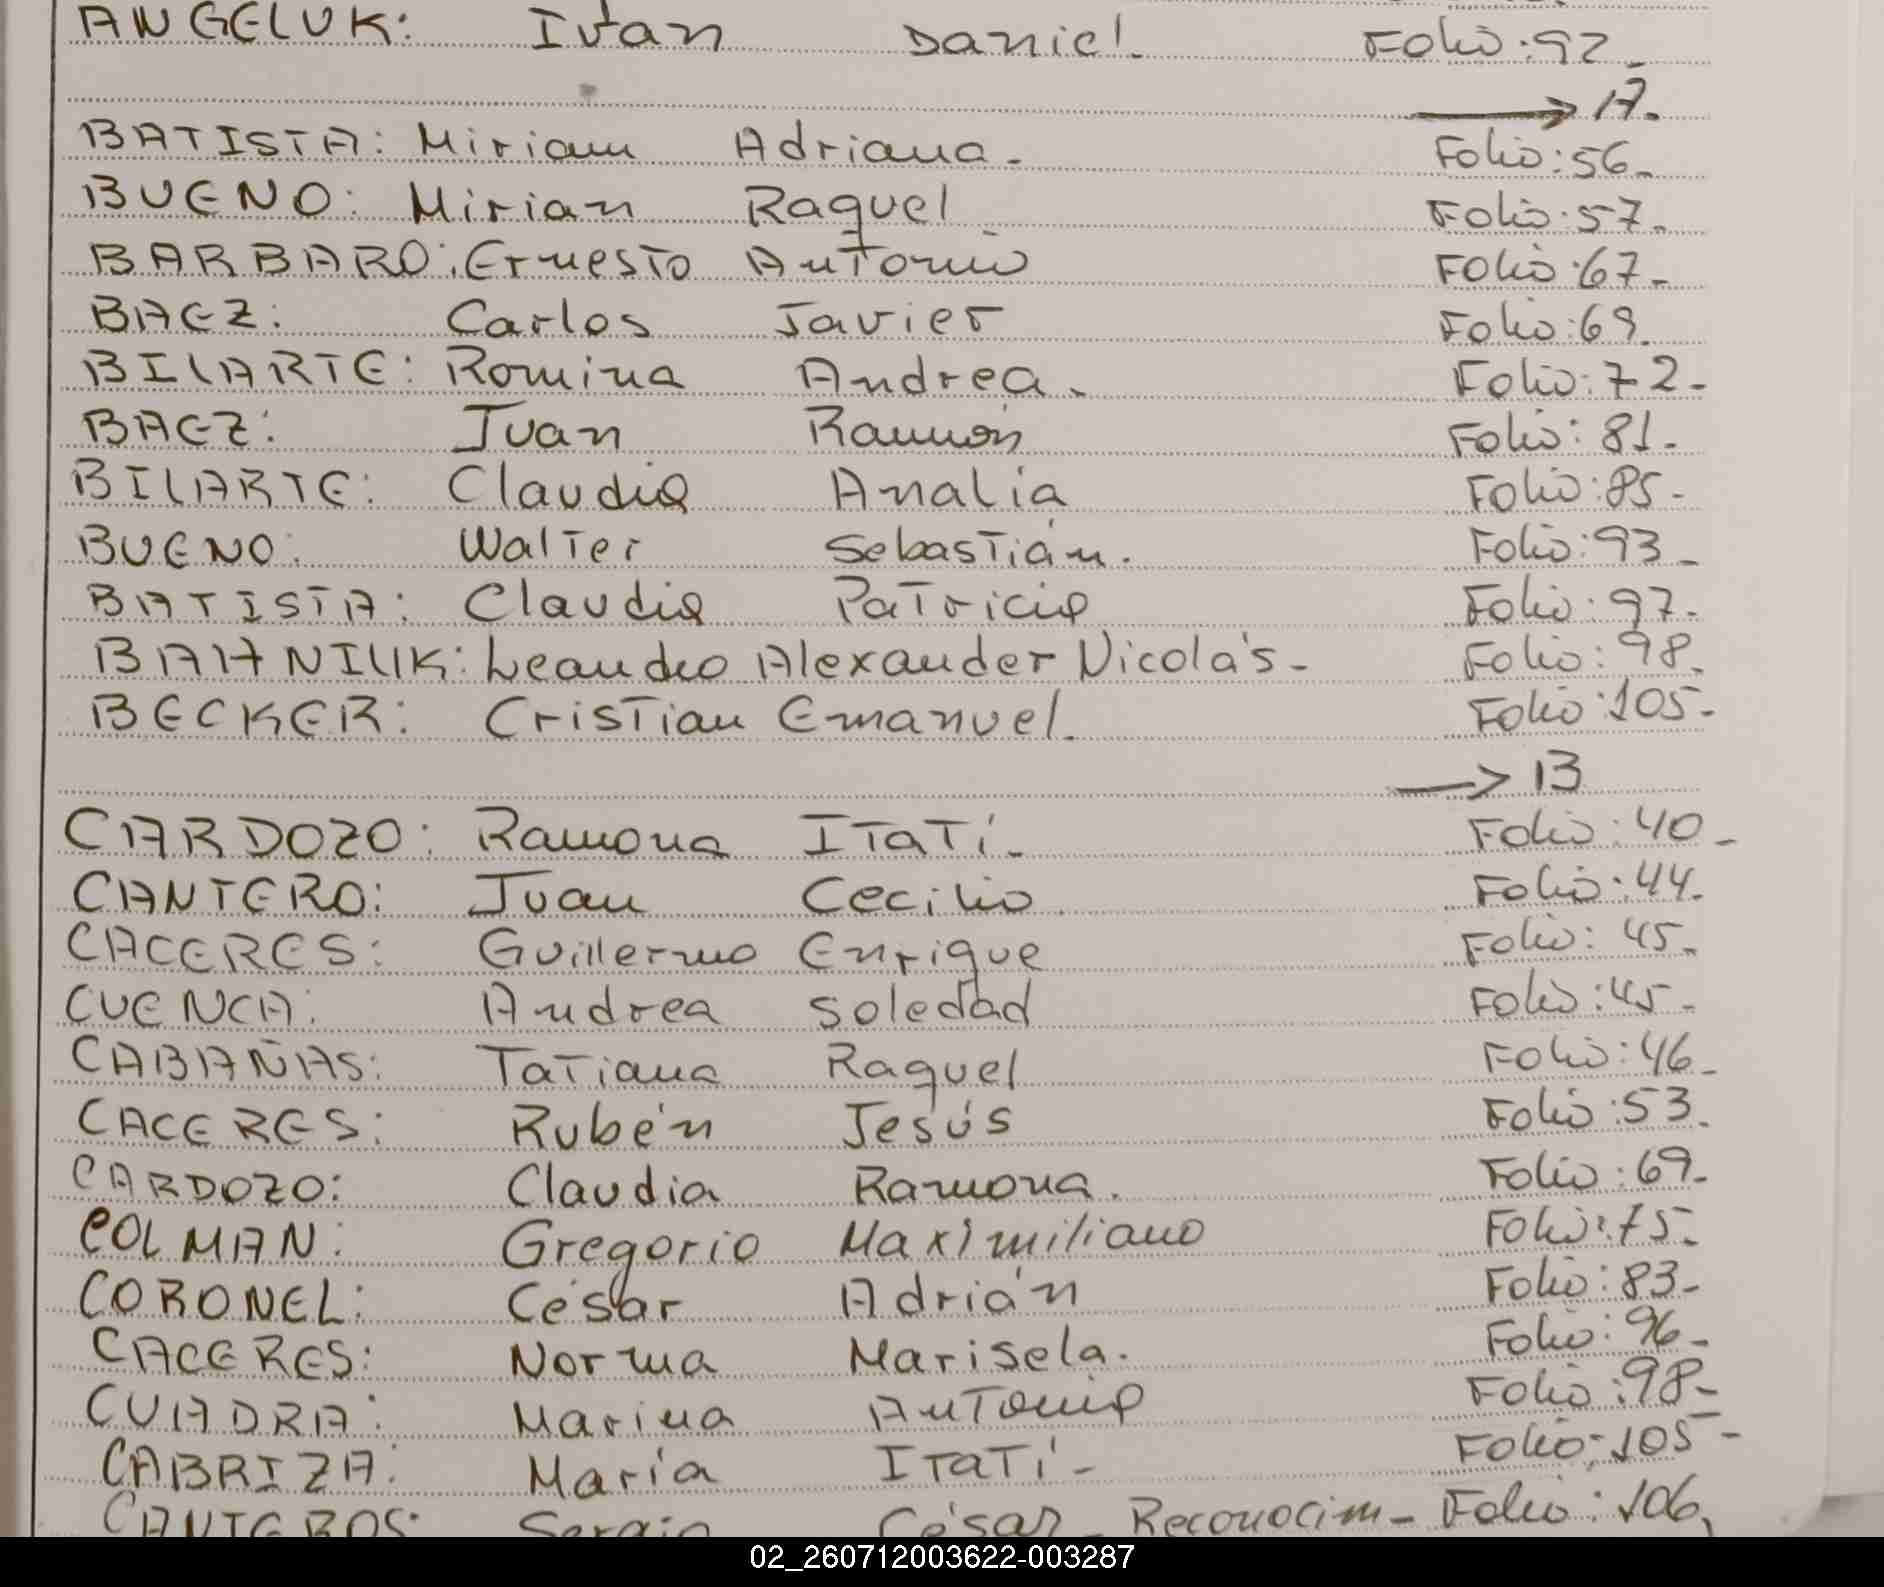 ANGELUK: Ivan Daniel. Folio: 92_
→ 17.
BATISTA: Miriam Adriana. Folio: 56_
BUENO: Mirian Raquel Folio: 57_
BARBARO: Ernesto Antonio Folio: 67_
BAEZ: Carlos Javier Folio: 69_
BILARTE: Romina Andrea. Folio: 72_
BAEZ: Juan Ramón Folio: 81_
BILARTE: Claudia Analía Folio: 85_
BUENO: Walter Sebastián. Folio: 93_
BATISTA: Claudia Patricia Folio: 97_
BAHNIUK: Leandro Alexander Nicolás_ Folio: 98_
BECKER: Cristian Emanuel. Folio: 105_
→ 13
CARDOZO: Ramona Itatí_ Folio: 40_
CANTERO: Juan Cecilio Folio: 44_
CACERES: Guillermo Enrique Folio: 45_
CUENCA: Andrea Soledad Folio: 45_
CABAÑAS: Tatiana Raquel Folio: 46_
CACERES: Rubén Jesús Folio: 53_
CARDOZO: Claudia Ramona. Folio: 69_
COLMAN: Gregorio Maximiliano Folio: 75_
CORONEL: César Adrián Folio: 83_
CACERES: Norma Marisela. Folio: 96_
CUADRA: Marina Antonia Folio: 98_
CABRIZA: María Itatí_ Folio: 105_
CANTEROS: Sergio César_ Reconocim_ Folio: 106_
02_260712003622-003287